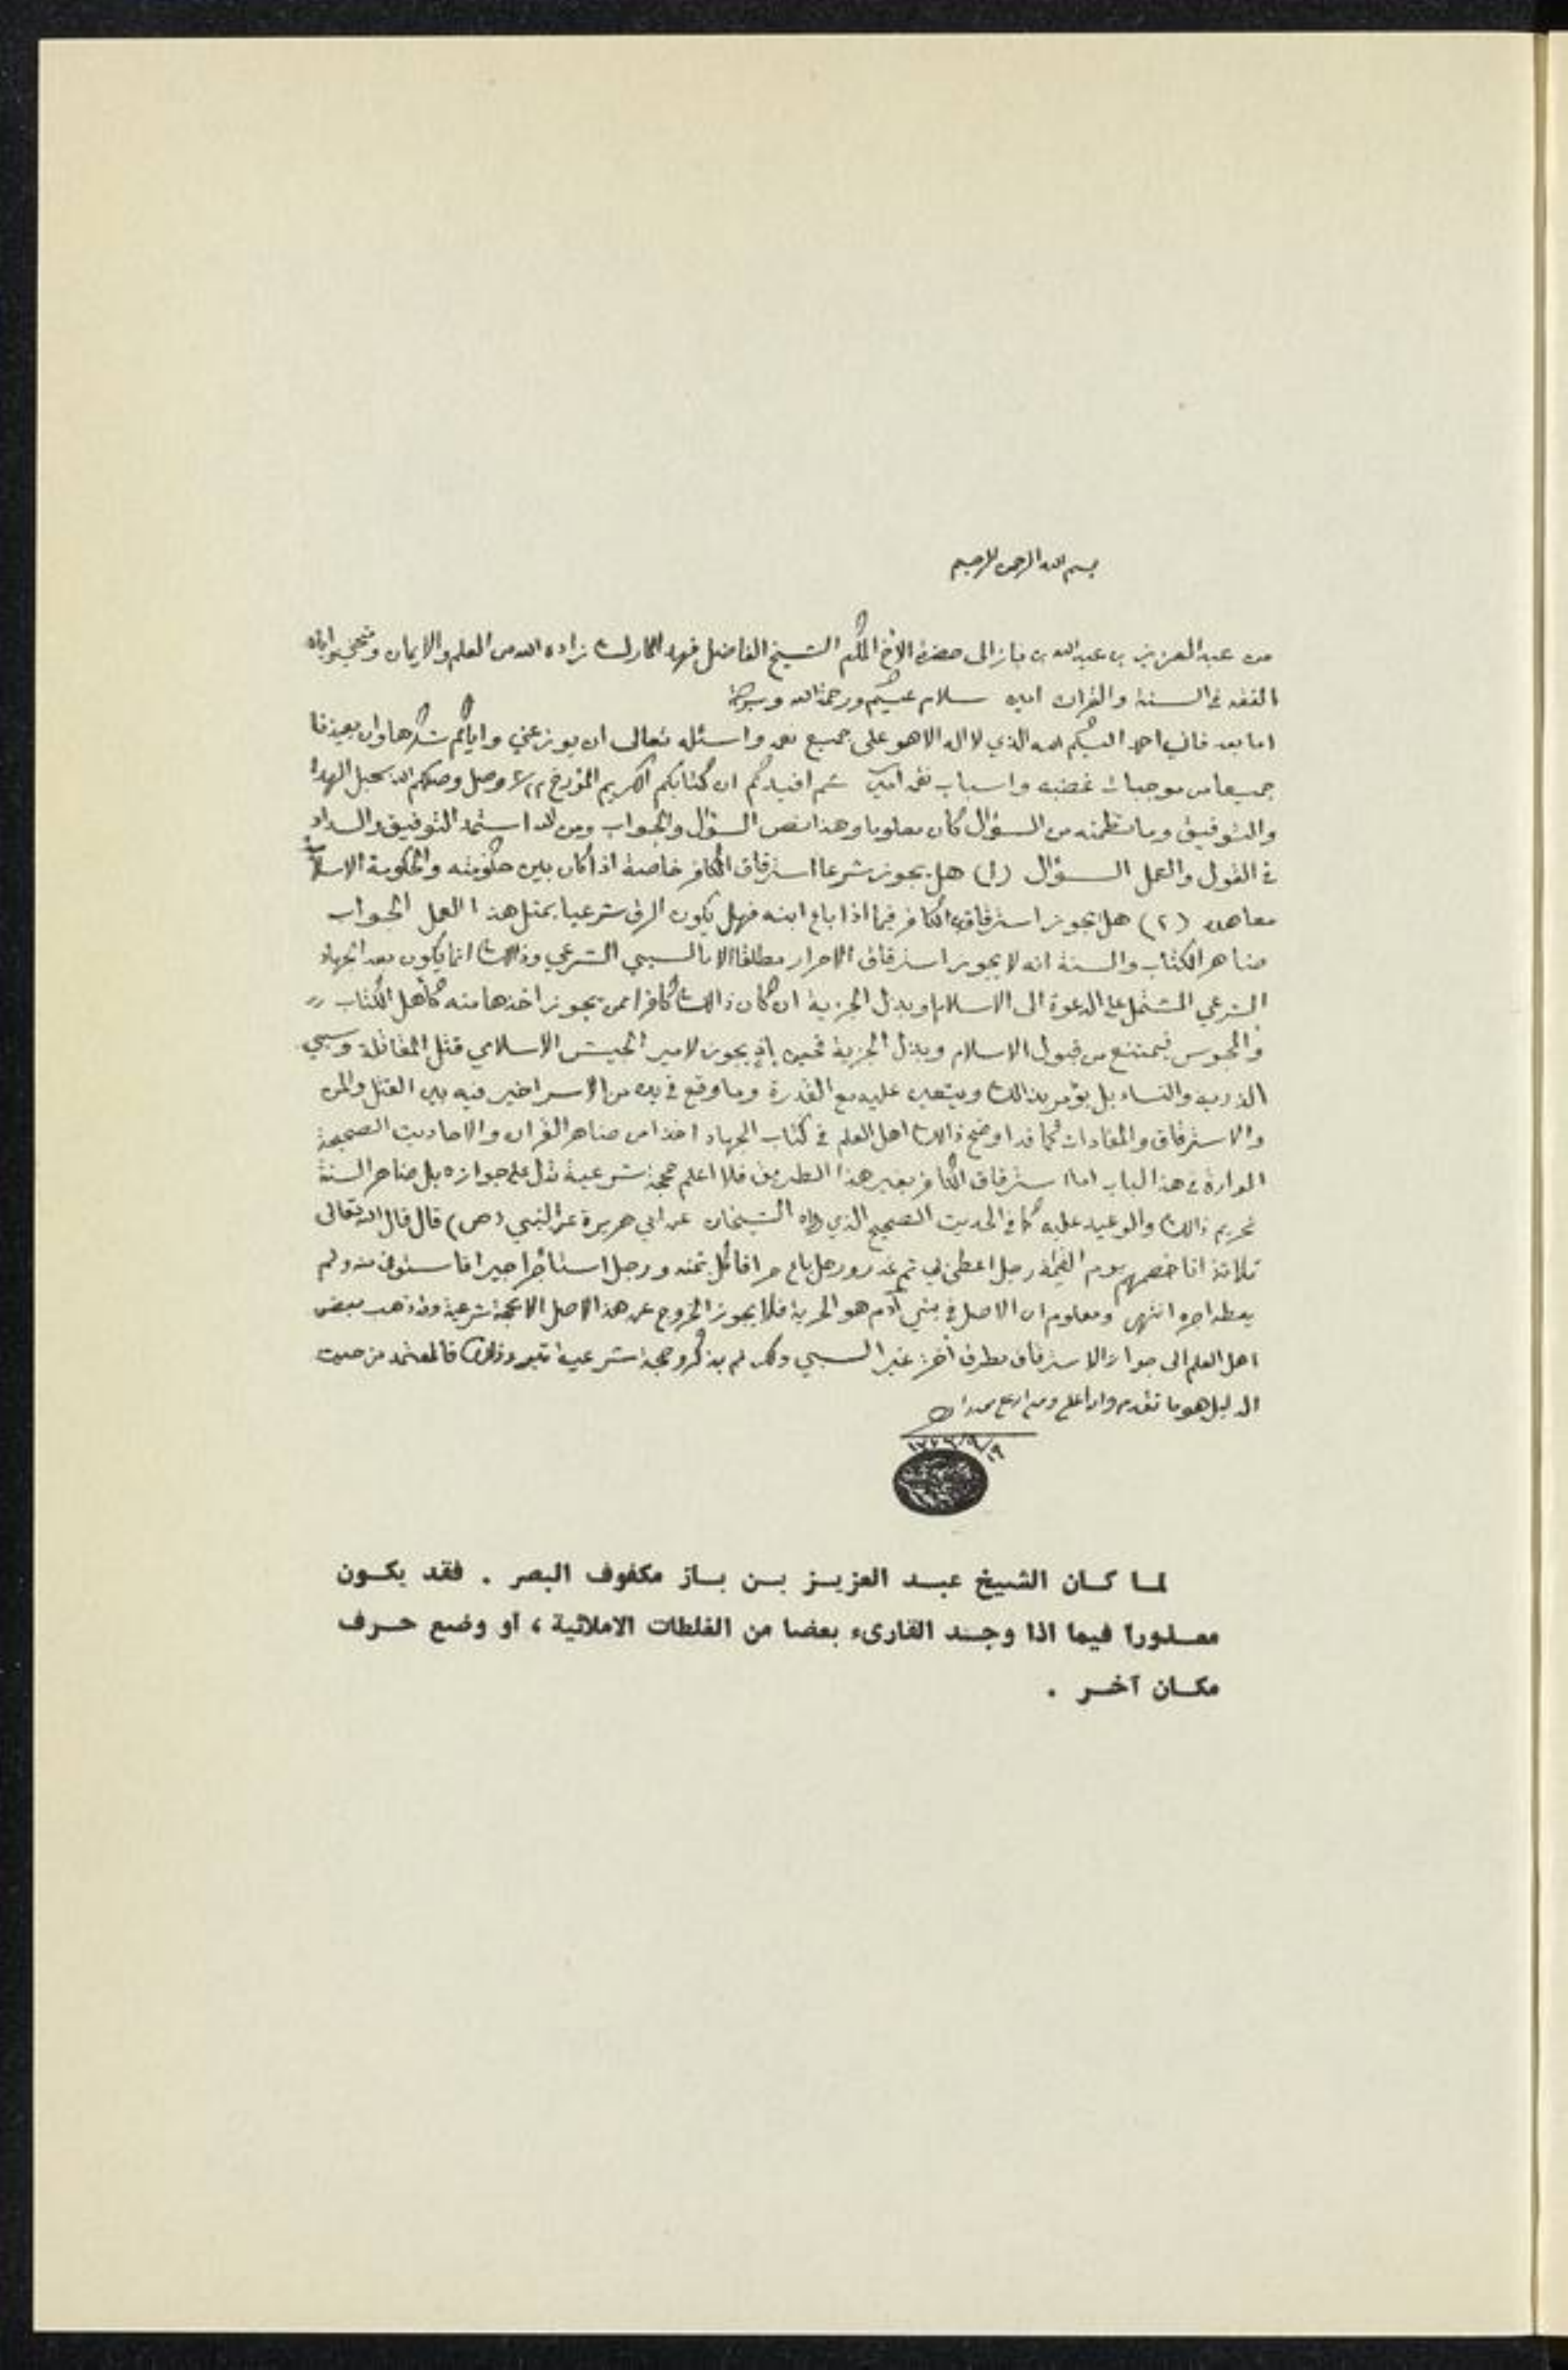 بسم الله الرحمن الرحيم
من عبد العزيز بن عبد الله بن باز الى حضرة الاخ المكرم الشيخ الفاضل فهد المارك زاده الله من العلم والايمان ومنحني واياه
الفقه في السنة والقران امين سلام عليكم ورحمة الله وبركاته
اما بعد فاني احمد اليكم الله الذي لا اله الا هو على جميع نعمه واسئله تعالى ان يوزعني واياكم شكرها وان يعيذنا
جميعا من موجبات غضبه واسباب نقمه امين ثم افيدكم ان كتابكم الكريم المؤرخ ٢٢/٤ وصل وصلكم الله بحبل الهدا
والتوفيق وما تظمنه من السؤال كان معلوما وهذا نص السؤال والجواب ومن الله استمد التوفيق والسداد
في القول والعمل السؤال (١) هل يجوز شرعا استرقاق الكافر خاصة اذا كان بين حكومته والحكومة الاسلامية
معاهده (٢) هل يجوز استرقاق الكافر فيما اذا باع ابنه فهل يكون الرق شرعيا بمثل هذا العمل الجواب
ضاهر الكتاب والسنة انه لا يجوز استرقاق الاحرار مطلقا الا بالسبي الشرعي وذالك انما يكون بعد الجهاد
الشرعي المشتمل على الدعوة الى الاسلام او بذل الجزية ان كان ذالك كافرا ممن يجوز اخذها منه كأهل الكتاب
والمجوس فيمتنع من قبول الاسلام وبذل الجزية فحين إذ يجوز لامير الجيش الاسلامي قتل المقاتلة وسبي
الذريه والنساء بل يؤمر بذالك ويتعين عليه مع القدرة وما وقع في يده من الاسرا خير فيه بين القتل والمن
والاسترقاق والمفادات كما قد اوضح ذالك اهل العلم في كتاب الجهاد اخذا من ضاهر القران والاحاديث الصحيحة
الوارة في هذا الباب اما استرقاق الكافر بغير هذا الطريق فلا اعلم حجة شرعية تدل على جوازه بل ضاهر السنة
تحريم ذالك والوعيد عليه كما في الحديث الصحيح الذي رواه الشيخان عن ابي هريرة عن النبي (ص) قال قال الله تعالى
ثلاثة انا خصمهم يوم القيمة رجل اعطى بي ثم غدر ورجل باع حرا فاكل ثمنه ورجل استأجر اجيرا فاستوفى منه ولم
يعطه اجره انتهى ومعلوم ان الاصل في بني آدم هو الحرية فلا يجوز الخروج عن هذا الاصل الا بحجة شرعية وقد ذهب بعض
اهل العلم الى جواز الاسترقاق بطرق أخر غير السبي ولكن لم يذكرو حجة شرعية وذالك فالمعتمد من حيث
الدليل هو ما تقدم والله اعلم
لما كان الشيخ عبد العزيز بن باز مكفوف البصر . فقد يكون
معذورا فيما اذا وجد القارىء بعضا من الغلطات الاملائية ، أو وضع حرف
مكان آخر .